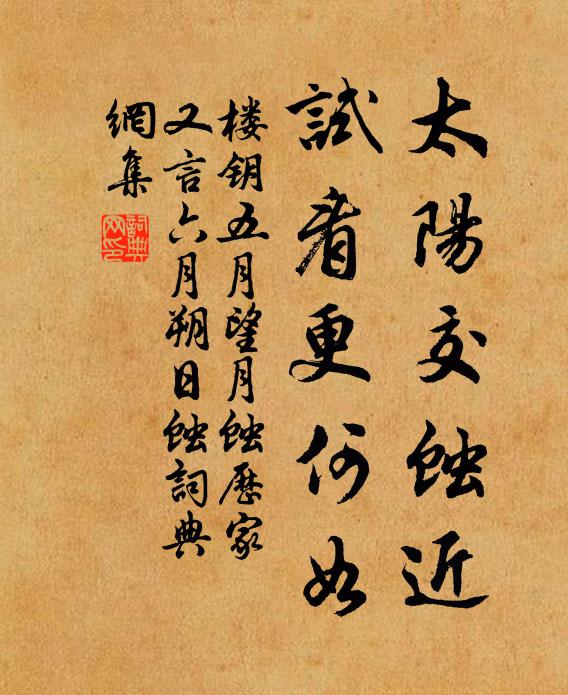 太陽交蝕近
試看更何如
楼钥五月望月蝕歷家
又言六月朔日蝕詞典
網集
詞典
网印